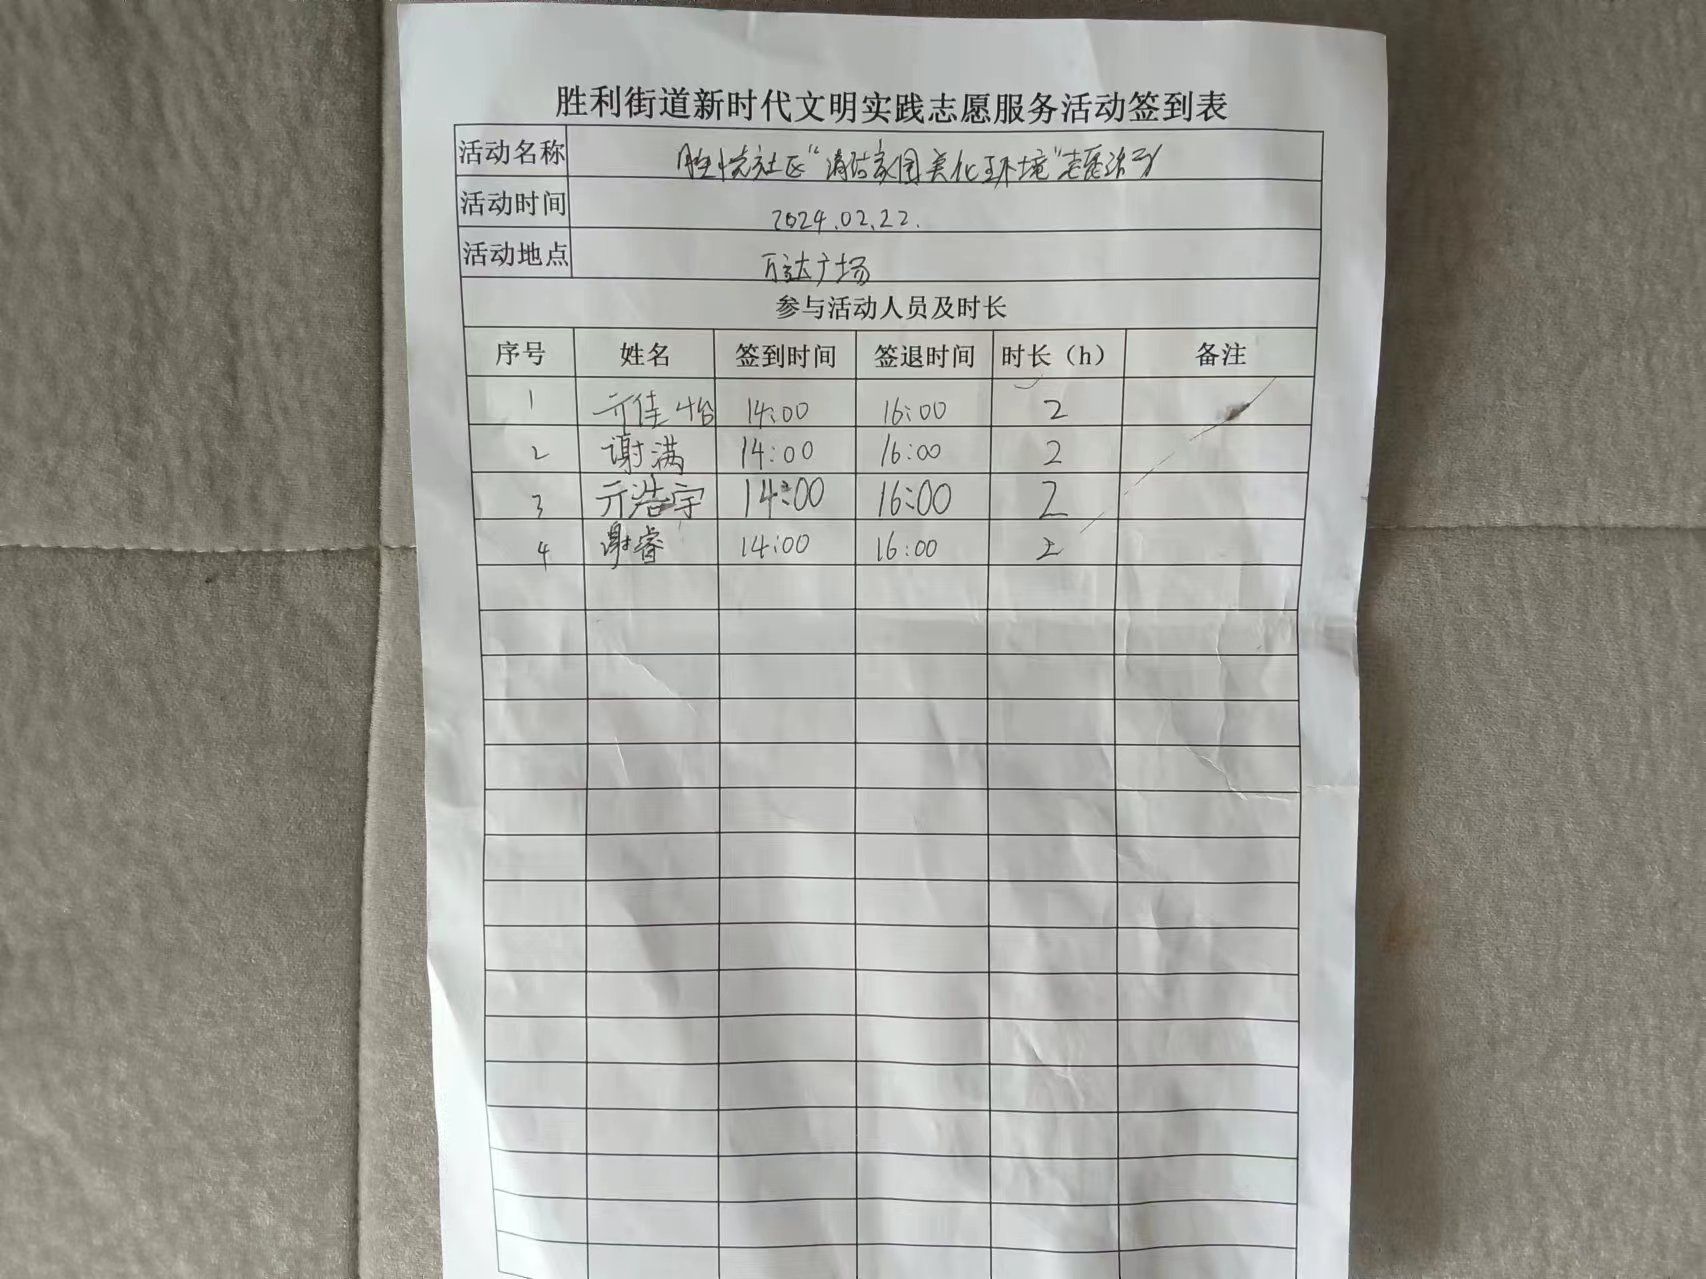 胜利街道新时代文明实践志愿服务活动签到表
活动名称 胜悦社区“清洁家园美化环境”志愿活动
活动时间 2024.02.22.
活动地点 万达广场
参与活动人员及时长
序号 姓名 签到时间 签退时间 时长（h） 备注
1 亓佳怡 14:00 16:00 2
2 谢满 14:00 16:00 2
3 亓浩宇 14:00 16:00 2
4 谢睿 14:00 16:00 2